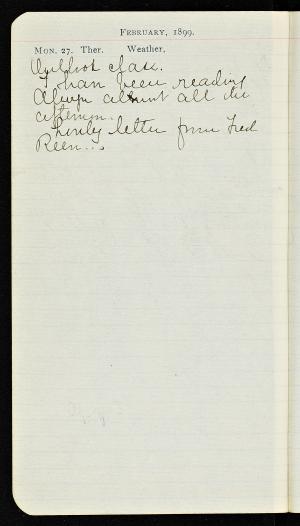 FEBRUARY, 1899.
MON. 27. Ther. Weather,
class.
I have been reading
all the
afternoon.
Lovely letter from Fred